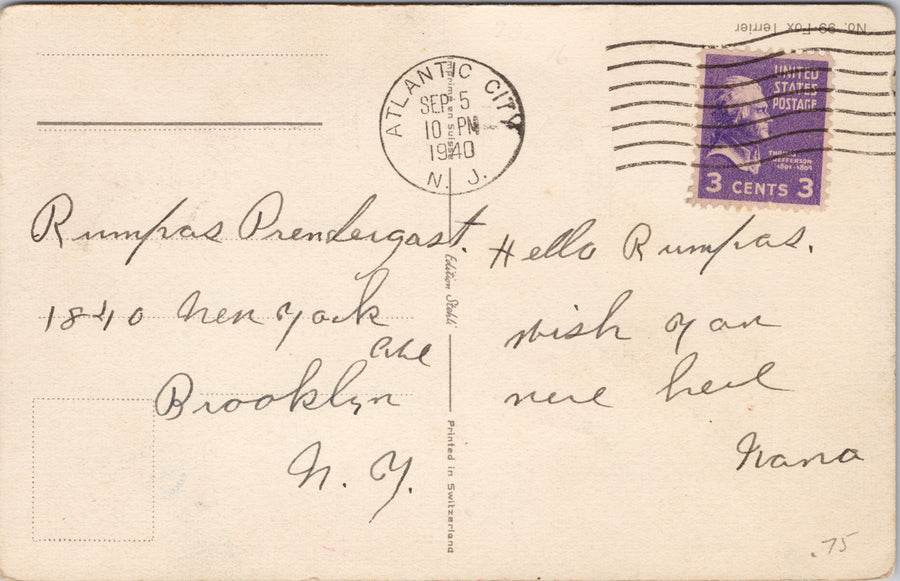 No. 99-Fox Terrier
ATLANTIC CITY
SEP 5
10 PM
1940
N. J.
UNITED
STATES
POSTAGE
THOMAS
JEFFERSON
1801-1809
3 CENTS 3
Imprimé en Suisse
Edition Stehli
Printed in Switzerland
Rumpas Prendergast.
1840 New York
Ave
Brooklyn
N. Y.
Hello Rumpas.
wish you
were here
Nana
.75